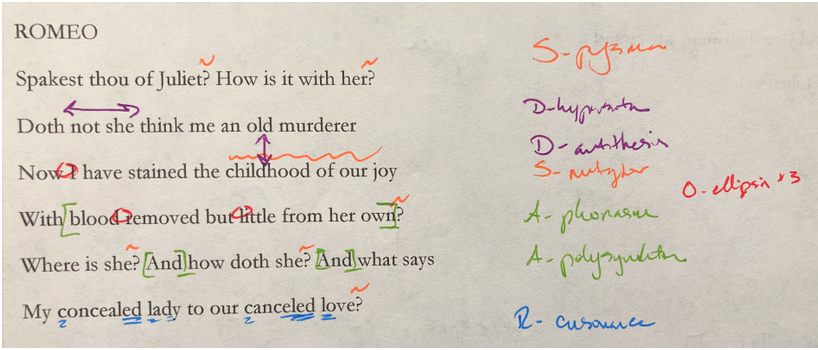 ROMEO
S-pysma
Spakest thou of Juliet? How is it with her?
D-hyperbata
Doth not she think me an old murderer
D-antithesis
Now I have stained the childhood of our joy
S-metaphor
O-ellipsis x3
With blood removed but little from her own?
A-
Where is she? And how doth she? And what says
A-polysyndeton
My concealed lady to our canceled love?
R-